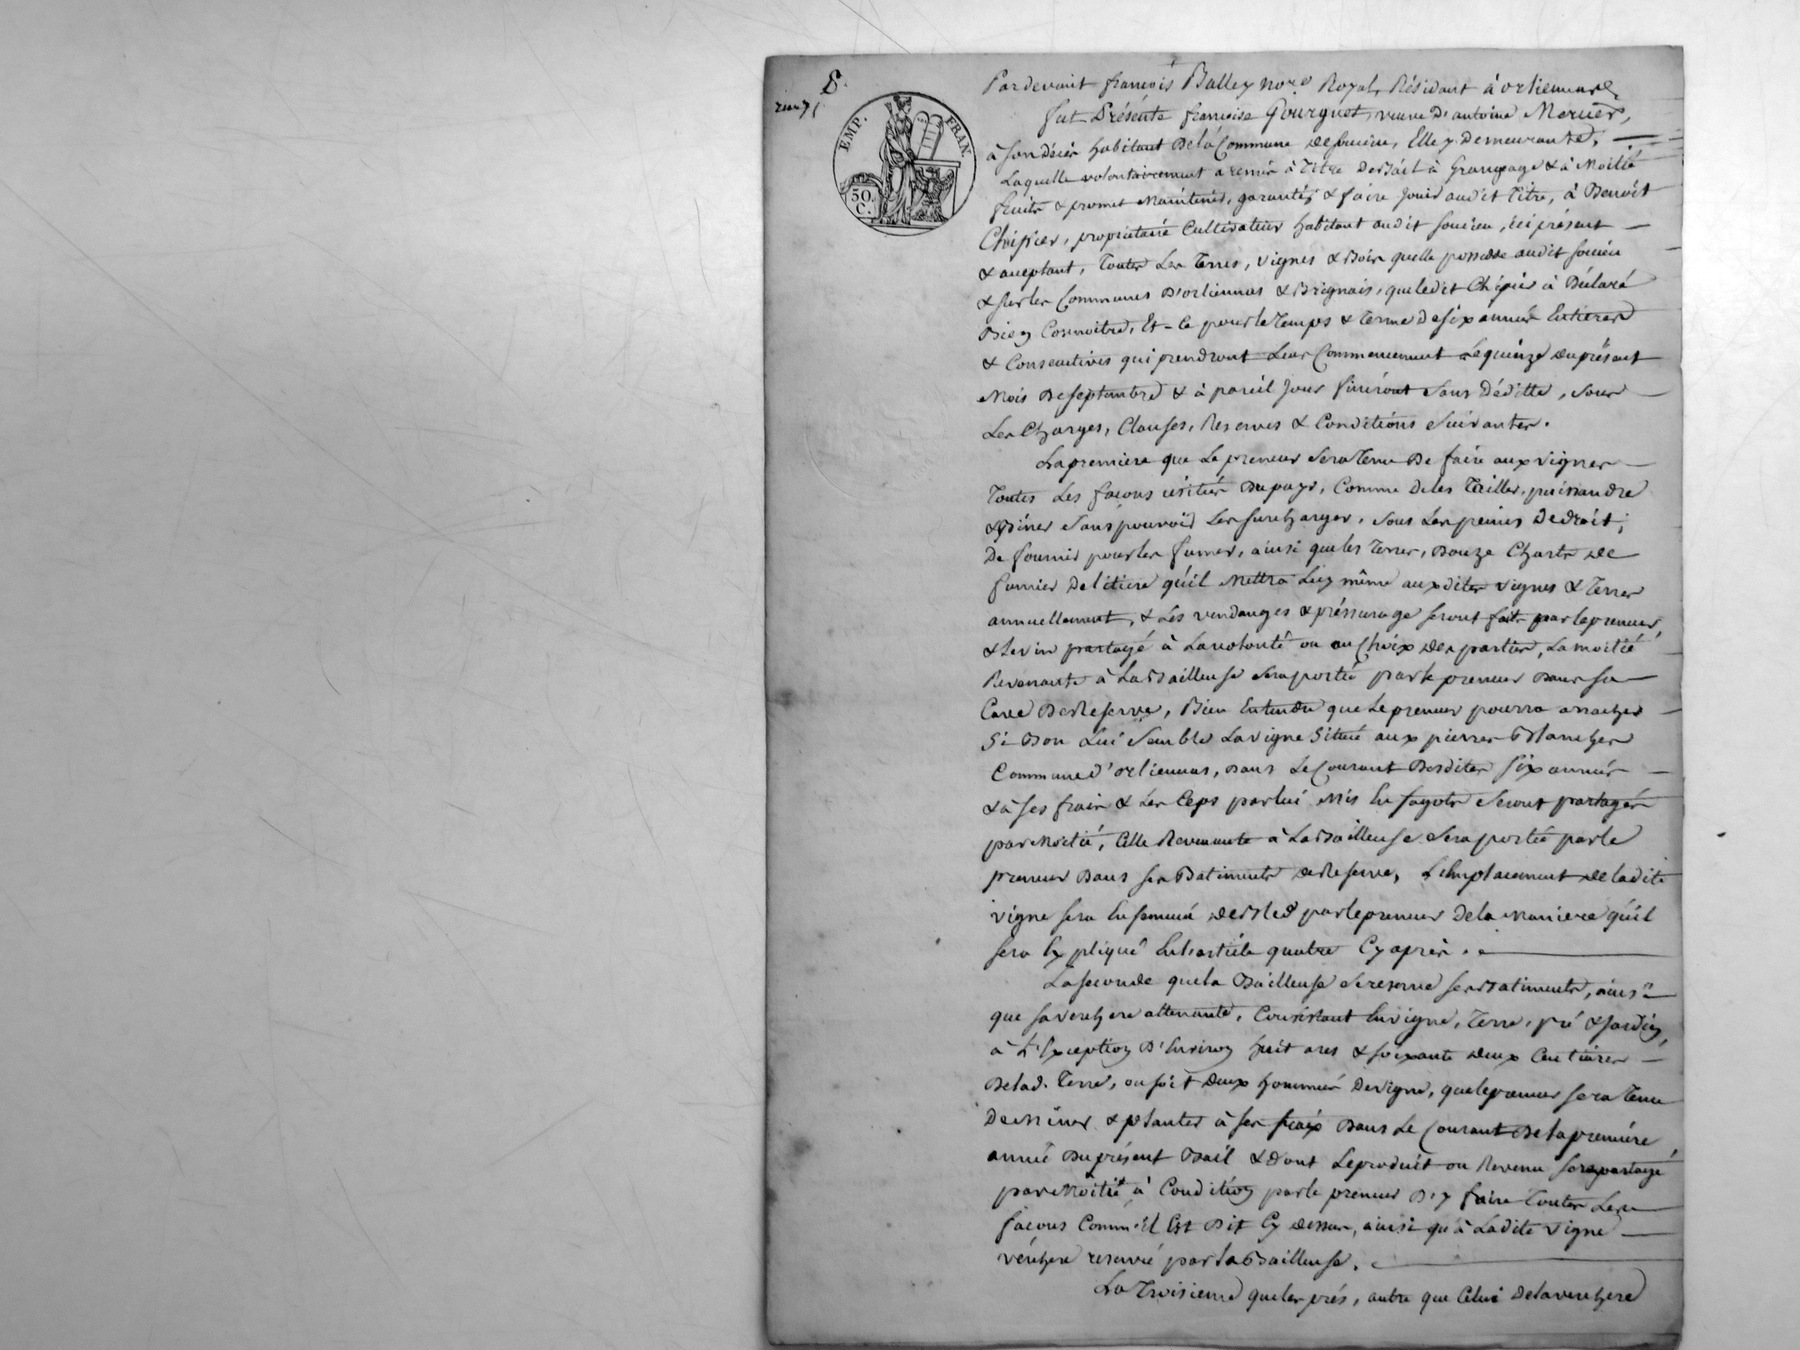 8.
EMP. FRAN.
50 C.
Pardevant françois Balley no.re Royal, Résidant à orliennas,
fut Présente francoise Gourguet, veuve d'antoine Mercier,
à son décès habitant de la Commune de soucieu, Elle y demeurante,
Laquelle volontairement a remis à titre de Bail à Grangeage & à Moitié
fruits & promet Maintenir, garantir & faire Jouir audit titre, à Benoit
Chipier, propriétaire Cultivateur habitant audit soucieu, ici présent
& acceptant, Toutes Les Terres, vignes & Bois quelle possede audit soucieu
& sur les Communes D'orliennas & Brignais, queledit Chipier a Déclaré
Bien Connoitre, Et-ce pour le temps & terme de six années Entieres
& Consecutives qui prendront Leur Commencement Le quinze du présent
Mois De septembre & à pareil Jour finiront sans Déditte, sous
Les Charges, Clauses, Reserves & Conditions suivantes.
La premiere que Le preneur sera Tenu De faire aux vignes
Toutes Les façons usitées Du pays, Comme de les Tailler,
& Biner sans pouvoir Les surcharger, sous Les peines de droit;
De fournir pour les fumer, ainsi que les Terres, Douze Chars de
fumier de litiere qu'il Mettra Luy même auxdites vignes & Terres
annuellement, & Les vendanges & préssurage seront faits par le preneur,
& Le vin partagé à La volonté ou au Choix des parties, La moitié
Revenante à La Bailleuse sera portée par le preneur Dans sa
Cave De Reserve, Bien Entendu que Le preneur pourra arracher
Si Bon Lui Semble La vigne Située aux pierres Blanches
Commune d'orliennas, Dans Le Courant Desdites six années
& à ses frais & Les Ceps par lui Mis En fagots seront partagés
par Moitié, Celle Revenante à La Bailleuse sera portée par le
preneur Dans ses Batiments de Reserve, L'Emplacement de ladite
vigne sera Ensemencé de Bled par le preneur de la Maniere qu'il
sera Expliqué En L'article quatre Cy après.
La seconde que la Bailleuse se reserve ses Batiments, ainsi
que sa verchere attenante, Consistant En vigne, Terre, pré & Jardin,
à L'Exception D'Environ huit ares & soixante deux Centiares
De lad. Terre, ou soit deux hommées De vigne, que le preneur sera Tenu
De Miner & planter à ses fraix Dans Le Courant De la première
année Du présent Bail & dont Le produit ou Revenu sera partagé
par Moitié à Condition par le preneur D'y faire Toutes Les
façons Comm'il Est Dit Cy dessus, ainsi qu'à Ladite vigne
vérchere reservée par la Bailleuse.
La Troisieme que les prés, autre que Celui De la verchere